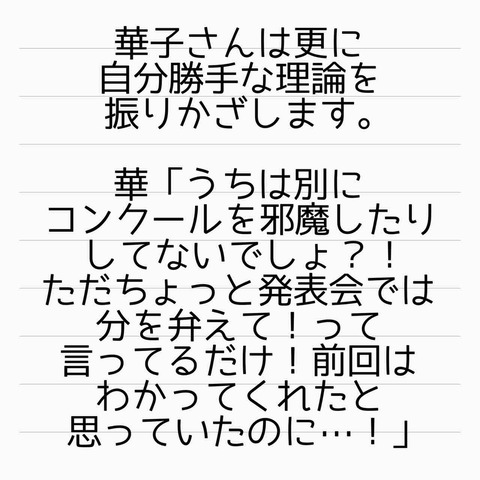 華子さんは更に
自分勝手な理論を
振りかざします。
華「うちは別に
コンクールを邪魔したり
してないでしょ？！
ただちょっと発表会では
分を弁えて！って
言ってるだけ！前回は
わかってくれたと
思っていたのに…！」